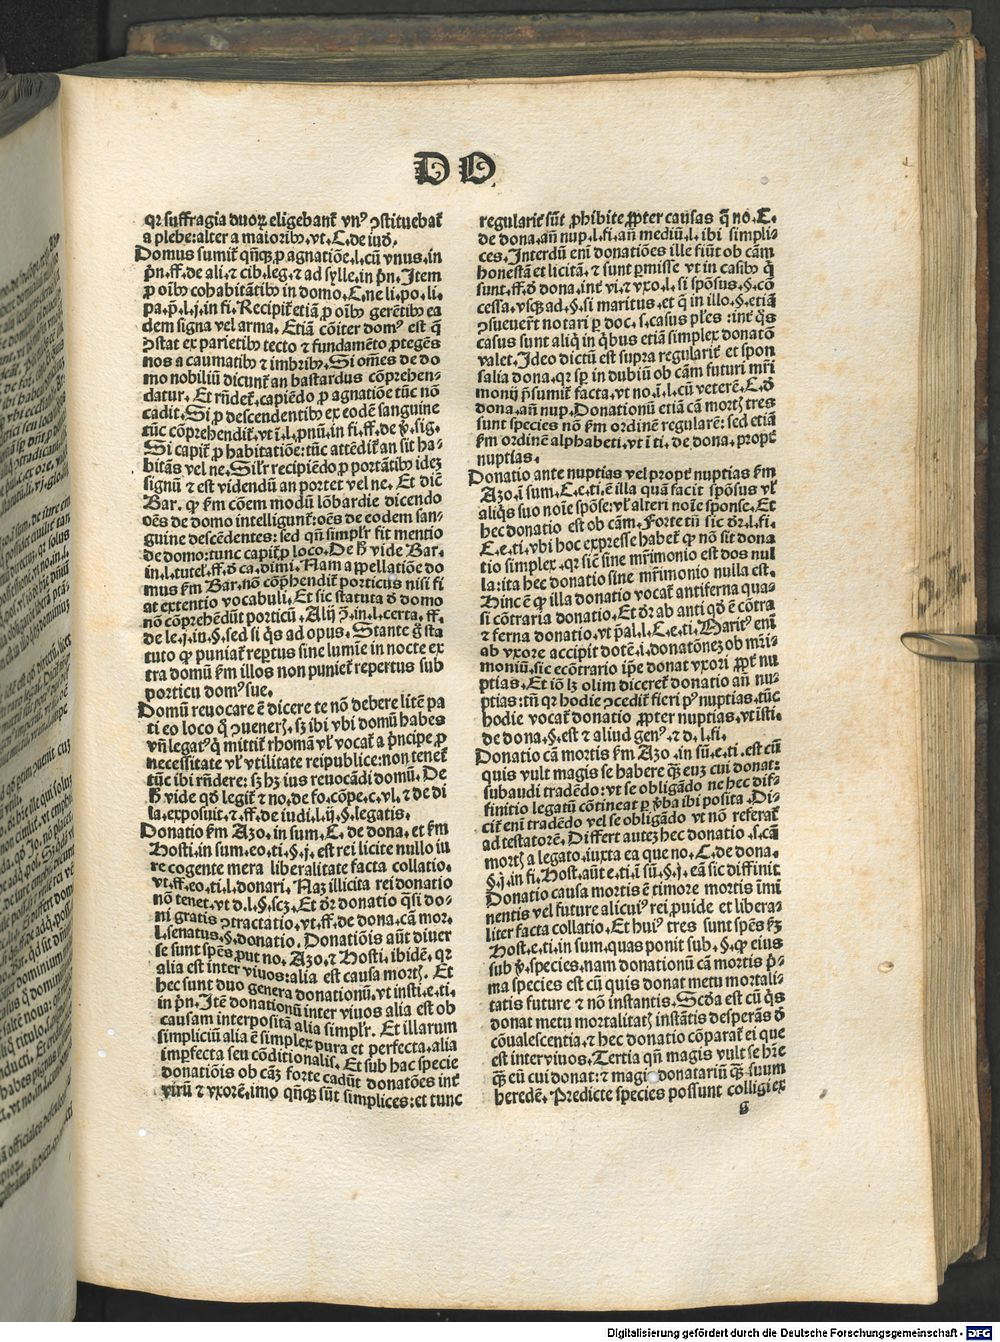 D O
qꝛ suffragia duoꝝ eligebant̃ vnꝰ ꝯstituebat̃
a plebe: alter a maioribꝰ, vt. C. de iud̃.
Domus sumit̃ qñqꝫ ꝓ agnatiõe. l. cũ vnus. in
pͥn. ff. de ali. ⁊ cib. leg. ⁊ ad sylle. in pͥn. Item
ꝓ oĩbꝰ cohabitãtibꝰ in domo. C. ne li. po. li.
pa. pͥ. l. j. in fi. Recipit̃ etiã ꝓ oĩbꝰ gerẽtibꝰ ea
dem signa vel arma. Etiã cõiter domꝰ est q̃
ꝯstat ex parietibꝰ tecto ⁊ fundamẽto ꝓtegẽs
nos a caumatibꝰ ⁊ imbribꝰ. Si om̃es de do
mo nobiliũ dicunt̃ an bastardus cõprehen-
datur. Et rñdet̃. capiẽdo ꝓ agnatiõe tũc nõ
cadit. Si ꝓ descendentibꝰ ex eodẽ sanguine
tũc cõprehendit̃. vt ĩ. l. pnũ. in fi. ff. de ꝟ. sig.
Si capit̃ ꝓ habitatiõe: tũc attẽdit̃ an sit ha-
bitãs vel ne. Silr̃ recipiẽdo ꝓ portãtibꝰ idez
signũ ⁊ est videndũ an portet vel ne. Et diẽ
Bar. ꝙ ẜm cõem modũ lõbardie dicendo
oẽs de domo intelligunt̃: oẽs de eodem san-
guine descẽdentes: sed qñ simplr̃ fit mentio
de domo: tunc capit̃ ꝓ loco. De h̃ vide Bar.
in. l. tutel. ff. d̃ ca. dimi. Nam appellatiõe do
mus ẜm Bar. nõ cõphendit̃ porticus nisi fi
at extentio vocabuli. Et sic statuta d̃ domo
nõ cõprehẽdũt porticũ. Alij ꝯ̃. in. l. certa. ff.
de le. j. iu. §. sed si q̃s ad opus. Stante g̃ sta
tuto ꝙ puniat̃ reptus sine lumĩe in nocte ex
tra domũ ẜm illos non puniet̃ repertus sub
porticu domꝰ sue.
Domũ reuocare ẽ dicere te nõ debere litẽ pa
ti eo loco q̃ ꝯuenerꝭ. sꝫ ibi vbi domũ habes
vñ legatꝰ q̃ mittit̃ rhomã vl̃ vocat̃ a pͥncipe ꝓ
necessitate vl̃ vtilitate reipublice: non tenet̃
tũc ibi rñdere: sꝫ hꝫ ius reuocãdi domũ. De
h̃ vide qd̃ legit̃ ⁊ no. de fo. cõpe. c. vl. ⁊ de di
la. exposuit. ⁊. ff. de iudi. l. ij. §. legatis.
Donatio ẜm Azo. in sum. C. de dona. et ẜm
Hosti. in sum. eo. ti. §. j. est rei licite nullo iu
re cogente mera liberalitate facta collatio.
vt. ff. eo. ti. l. donari. Naz illicita rei donatio
nõ tenet. vt d. l. §. scꝫ. Et dr̃ donatio q̃si do-
ni gratis ꝯtractatio. vt. ff. de dona. cã mor.
l. senatus. §. donatio. Donatiõis aũt diuer
se sunt spẽs ꝓut no. Azo. ⁊ Hosti. ibidẽ. qꝛ
alia est inter viuos: alia est causa mortꝭ. Et
hec sunt duo genera donationũ. vt insti. e. ti.
in pͥn. Itẽ donationũ inter viuos alia est ob
causam interpositã alia simplr̃. Et illarum
simpliciũ alia ẽ simplex pura et perfecta. alia
imꝑfecta seu cõditionalis. Et sub hac specie
donatiõis ob cãz forte cadũt donatões int̃
virũ ⁊ vxorẽ. imo qñqꝫ sũt simplices: et tunc
regularit̃ sũt ꝓhibite ꝓpter causas q̃ no. C.
de dona. añ nup. l. fi. añ mediũ. l. ibi simpli-
ces. Interdũ eni donatiões ille fiũt ob cãm
honestã et licitã. ⁊ sunt ꝑmisse vt in casibꝰ q̃
sunt. ff. d̃ dona. int̃ vi. ⁊ vxo. l. si spõsus. §. cõ
cessa. vsqꝫ ad. §. si maritus. et q̃ in illo. §. etiã
ꝯsueuer̃t notari ꝑ doc. s. casus pl̃es: int̃ q̃s
casus sunt aliq̃ in q̃bus etiã simplex donatõ
valet. Ideo dictũ est supra regularit̃ et spon
salia dona. qꝛ sꝑ in dubiũ ob cãm futuri mr̃i
monij pͥsumit̃ facta. vt no. ĩ. l. cũ veterẽ. C. d̃
dona. añ nup. Donationũ etiã cã mortꝭ tres
sunt species nõ ẜm ordinẽ regularẽ: sed etiã
ẜm ordinẽ alphabeti. vt ĩ ti. de dona. propt̃
nuptias.
Donatio ante nuptias vel propt̃ nuptias ẜm
Azo. ĩ sum. C. e. ti. ẽ illa quã facit spõsus vl̃
aliq̃s suo noĩe spõse: vl̃ alteri noĩe sponse. Et
hec donatio est ob cãm. Forte tñ sic dr̃. l. fi.
C. e. ti. vbi hoc expresse habet̃ ꝙ nõ sit dona
tio simplex. qꝛ sic̃ sine mr̃imonio est dos nul
la: ita hec donatio sine mr̃imonio nulla est.
Hinc ẽ ꝙ illa donatio vocat̃ antiferna qua-
si cõtraria donatio. Et dr̃ ab anti qd̃ ẽ cõtra
⁊ ferna donatio. vt pͥal. l. C. e. ti. Maritꝰ eni
ab vxore accipit dotẽ. i. donatõnez ob mr̃i-
moniũ. sic ecõtrario ip̃e donat vxori ꝓpt̃ nu
ptias. Et iõ lꝫ olim diceret̃ donatio añ nu-
ptias: tñ qꝛ hodie ꝯcedit̃ fieri pꝰ nuptias. tũc
hodie vocat̃ donatio ꝓpter nuptias. vt isti.
de dona. §. est ⁊ aliud genꝰ. ⁊ d. l. fi.
Donatio cã mortis ẜm Azo. in sũ. e. ti. est cũ
quis vult magis se habere q̃ꝫ euz cui donat:
subaudi tradẽdo: vt se obligãdo ne hec dif-
finitio legatũ cõtineat ꝑ ꝟba ibi posita. Di-
cit̃ eni tradẽdo vel se obligãdo vt nõ referat̃
ad testatorẽ. Differt autez hec donatio. s. cã
mortꝭ a legato. iuxta ea que no. C. de dona.
§. j. in fi. Host. aũt e. ti. ĩ sũ. §. j. eã sic diffinit
Donatio causa mortis ẽ timore mortis ĩmi
nentis vel future alicuiꝰ rei ꝓuide et libera-
liter facta collatio. Et huiꝰ tres sunt spẽs ẜꝫ
Host. e. ti. in sum. quas ponit sub. §. ꝙ eius
sub ꝟ. species. nam donationũ cã mortis pͥ-
ma species est cũ quis donat metu mortali-
tatis future ⁊ nõ instantis. Scd̃a est cũ q̃s
donat metu mortalitatꝭ instãtis desperãs d̃
cõualescentia. ⁊ hec donatio cõparat̃ ei que
est inter viuos. Tertia qñ magis vult se hr̃e
q̃ꝫ eũ cui donat: ⁊ magi donatariũ q̃ꝫ suum
heredẽ. Predicte species possunt colligi ex
g
Digitalisierung gefördert durch die Deutsche Forschungsgemeinschaft - DFG